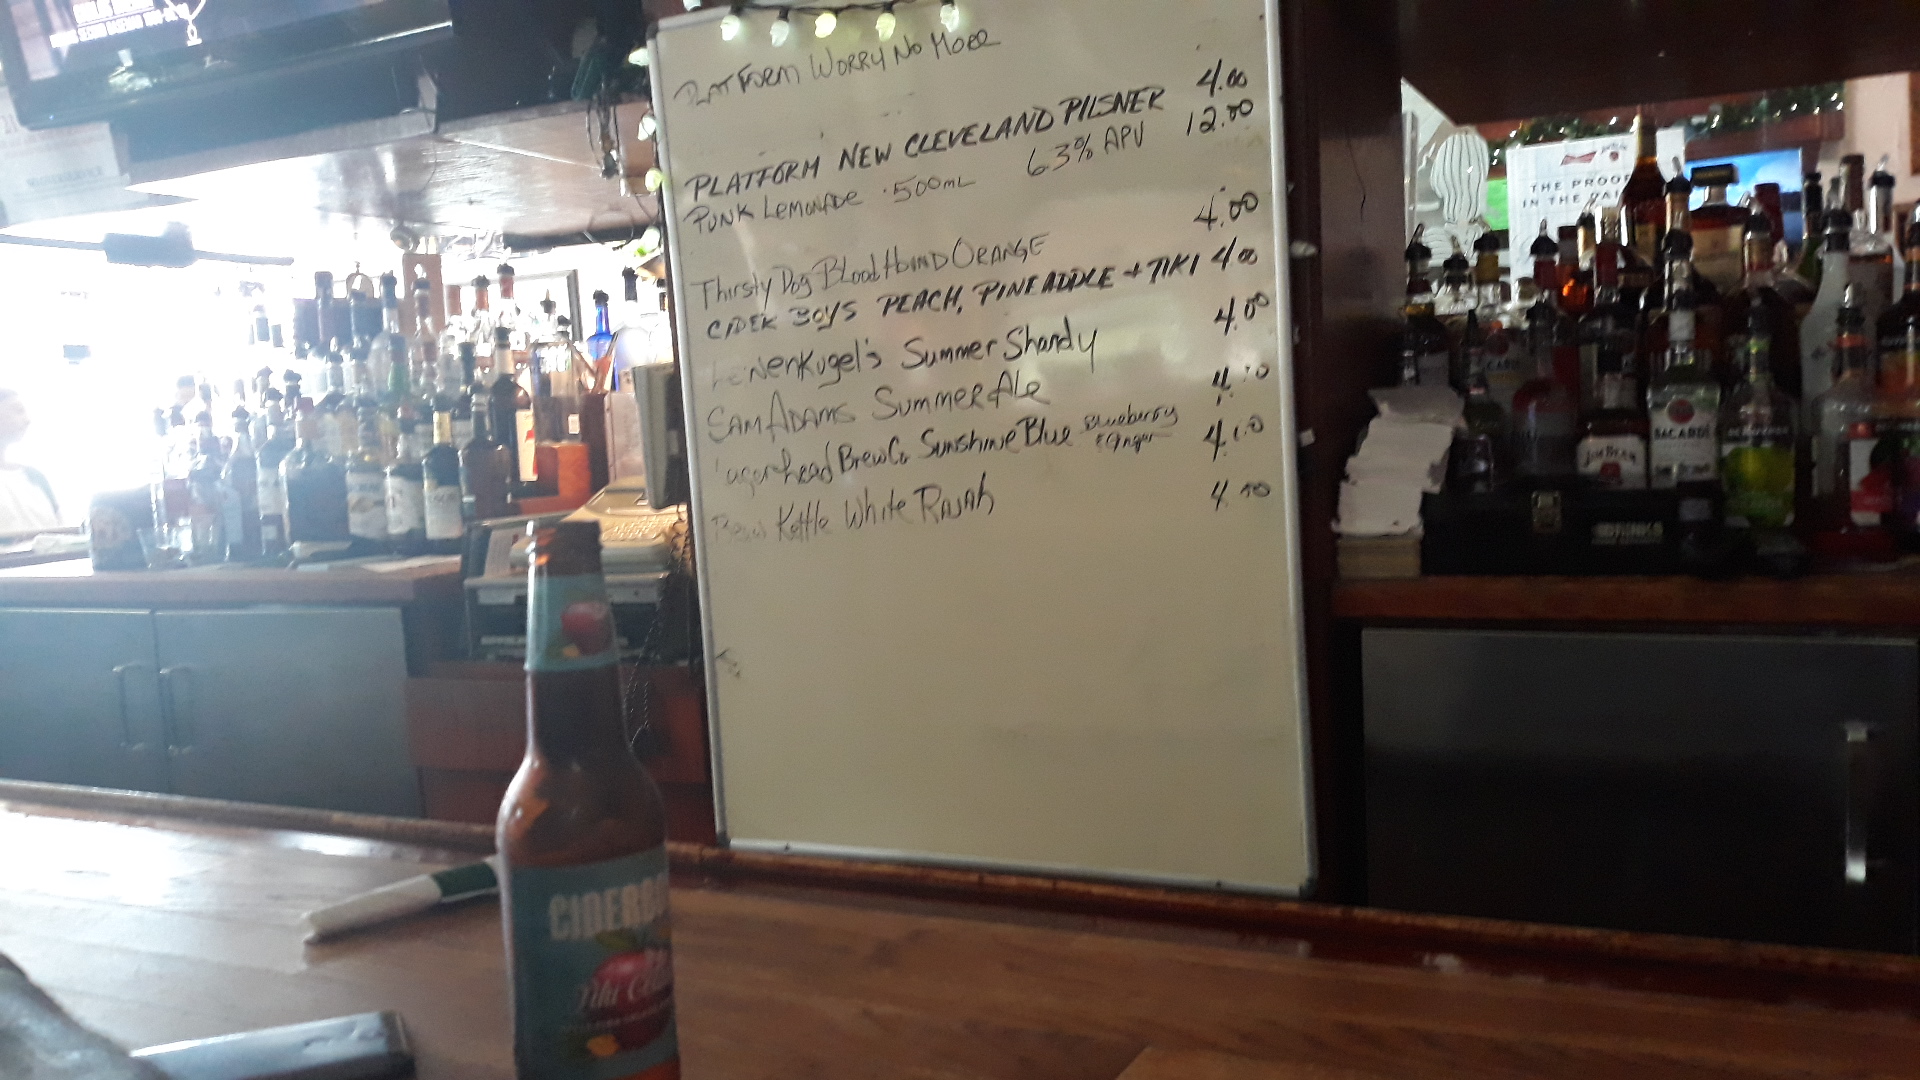 PLATFORM WORRY NO MORE
PLATFORM NEW CLEVELAND PILSNER 4.00
PUNK LEMONADE .500mL 6.3% APV 12.00
Thirsty Dog Blood Hound ORANGE 4.00
CIDER BOYS PEACH, PINEAPPLE + TIKI 4.00
Leinenkugel's Summer Shandy 4.00
SAM ADAMS Summer Ale 4.00
Lagerhead Brew Co Sunshine Blue Blueberry & Ginger 4.00
Brew Kettle White RAJAH 4.00
THE PROOF
IN THE
JIM BEAM
BACARDI
CIDERBO
Tiki